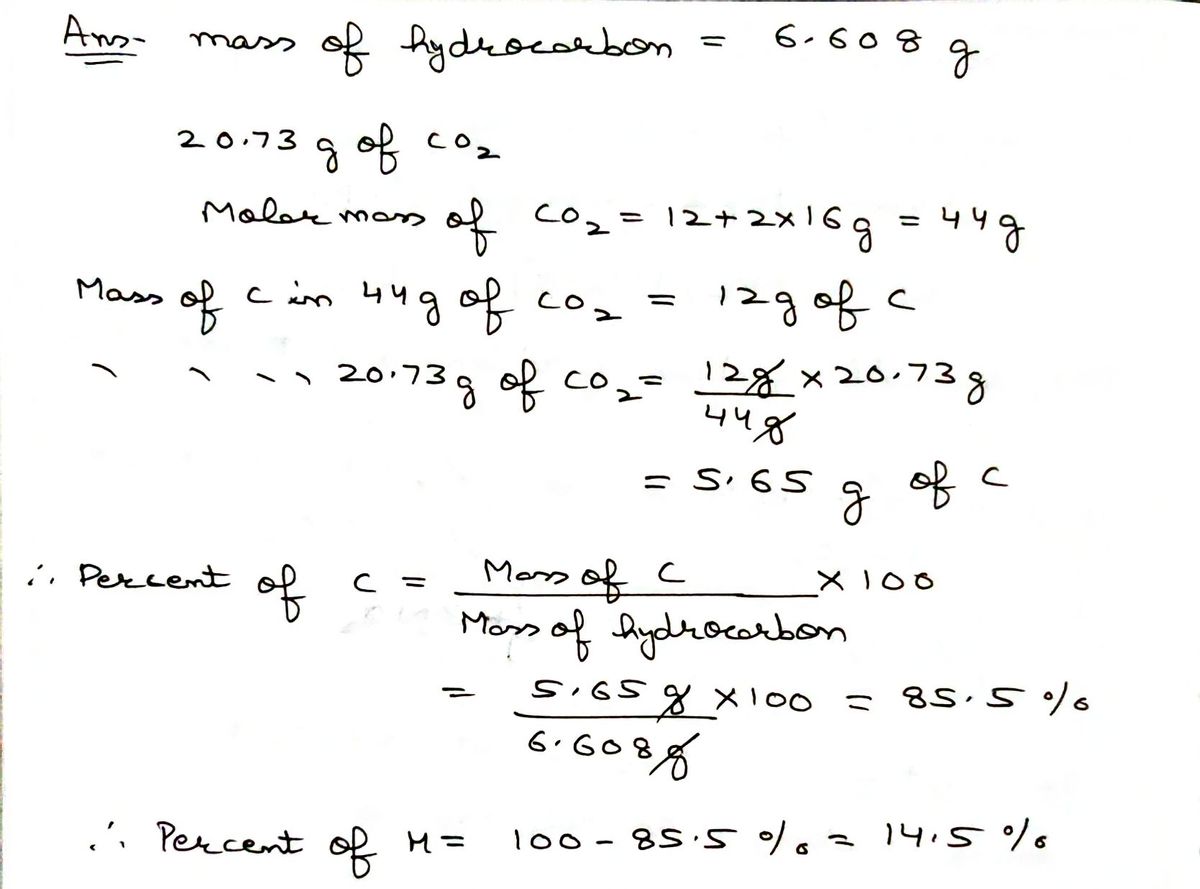 Ans- mass of hydrocarbon = 6.608 g
20.73 g of CO₂
Molar mass of CO₂ = 12+2×16g = 44g
Mass of C in 44g of CO₂ = 12g of C
\ \ \\ 20.73g of CO₂ = 12g/44g × 20.73g
= 5.65 g of C
∴ Percent of C = Mass of C/Mass of hydrocarbon × 100
= 5.65g/6.608g × 100 = 85.5 %
∴ Percent of H = 100 - 85.5 % = 14.5 %